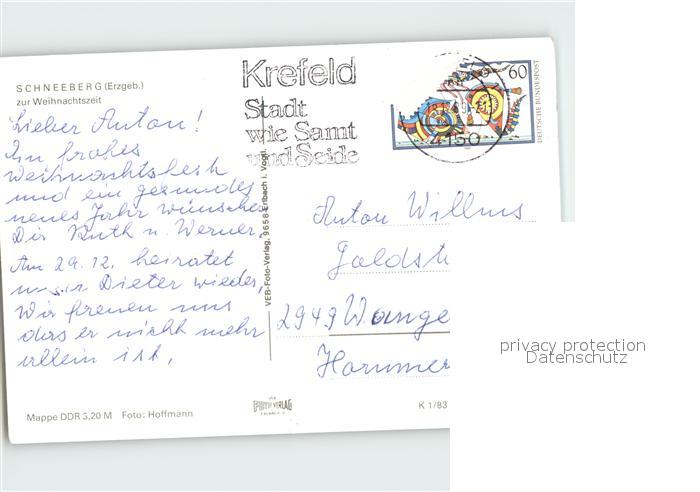 SCHNEEBERG (Erzgeb.)
zur Weihnachtszeit
Lieber Anton!
Ein frohes
Weihnachtsfest
und ein gesundes
neues Jahr wünschen
Dir Ruth u. Werner.
Am 29.12. heiratet
unser Dieter wieder,
Wir freuen uns
dass er nicht mehr
allein ist,
Mappe DDR 5,20 M Foto: Hoffmann
VEB-Foto-Verlag, 9658 Erlbach i. Vogtl.
Krefeld
Stadt
wie Samt
und Seide
4150
60
DEUTSCHE BUNDESPOST
Anton Willms
Goldst
2949 Wange
Hammer
VERLAG
K 1/83
privacy protection
Datenschutz